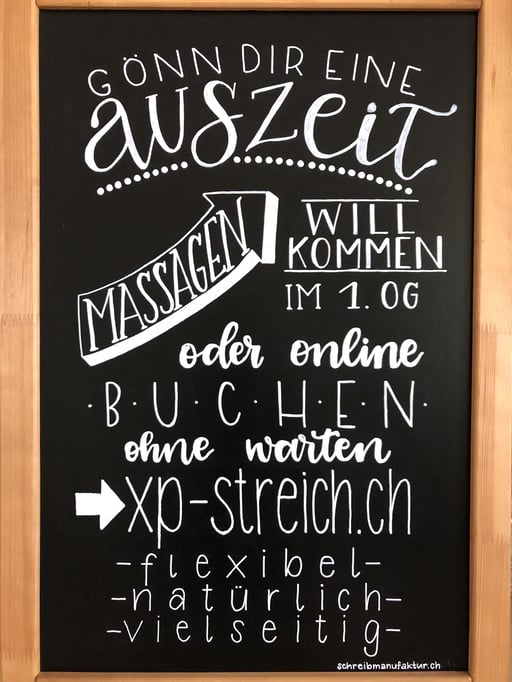 GÖNN DIR EINE
auszeit
MASSAGEN
WILL
KOMMEN
IM 1. OG
oder online
·B·U·C·H·E·N·
ohne warten
xp-streich.ch
-flexibel-
-natürlich-
-vielseitig-
schreibmanufaktur.ch